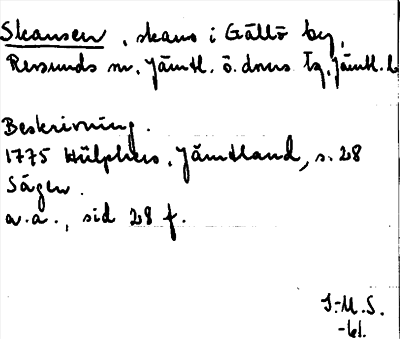 Skansen, skans i Gällö by,
Revsunds sn, Jämtl. ö. doms tg, Jämtl. l
Beskrivning.
1775 Hülphers, Jämtland, s. 28
Sägen.
a.a., sid 28 f.
I.M.S.